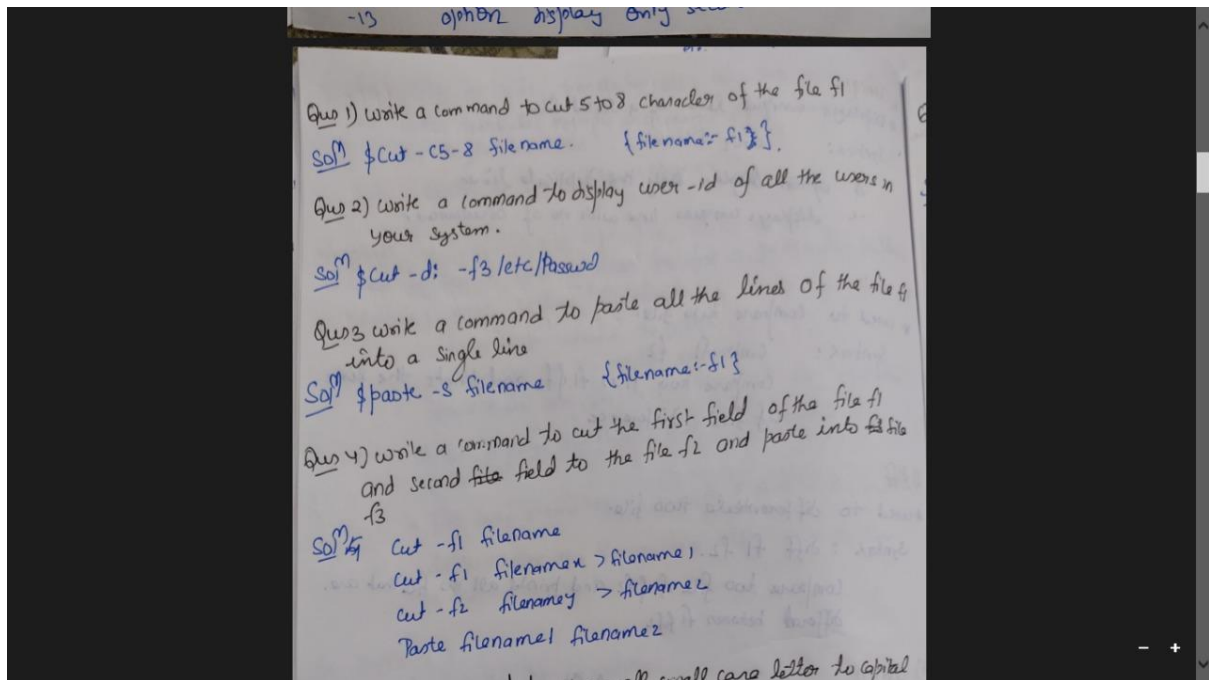 -13 option display only
Ques 1) Write a command to cut 5 to 8 character of the file f1
Soln $ Cut -C5-8 filename. {filename:- f1}.
Ques 2) Write a command to display user-id of all the users in
your system.
Soln $ Cut -d: -f3 /etc/Passwd
Ques 3 Write a command to paste all the lines of the file f1
into a single line
Soln $ paste -s filename {filename:-f1}
Ques 4) Write a command to cut the first field of the file f1
and second file field to the file f2 and paste into f3 file
f3
Soln Cut -f1 filename
cut -f1 filenamex > filename1
cut -f2 filenamey > filename2
Paste filename1 filename2
small case letter to capital